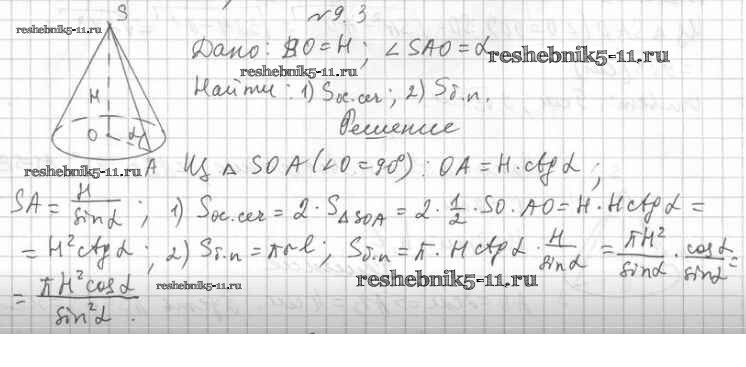 №9.3
S
reshebnik5-11.ru
Дано: SO = H; ∠SAO = α
reshebnik5-11.ru
reshebnik5-11.ru
Найти: 1) Sос.сеч; 2) Sб.п.
H
Решение
O α
reshebnik5-11.ru A Из △ SOA (∠O = 90°): OA = H · ctg α;
SA = H/sin α; 1) Sос.сеч = 2 · S△SOA = 2 · 1/2 · SO · AO = H · H ctg α =
= H² ctg α; 2) Sб.п = πrl; Sб.п = π · H ctg α · H/sin α = πH²/sin α · cos α/sin α =
= πH² cos α/sin² α.
reshebnik5-11.ru
reshebnik5-11.ru